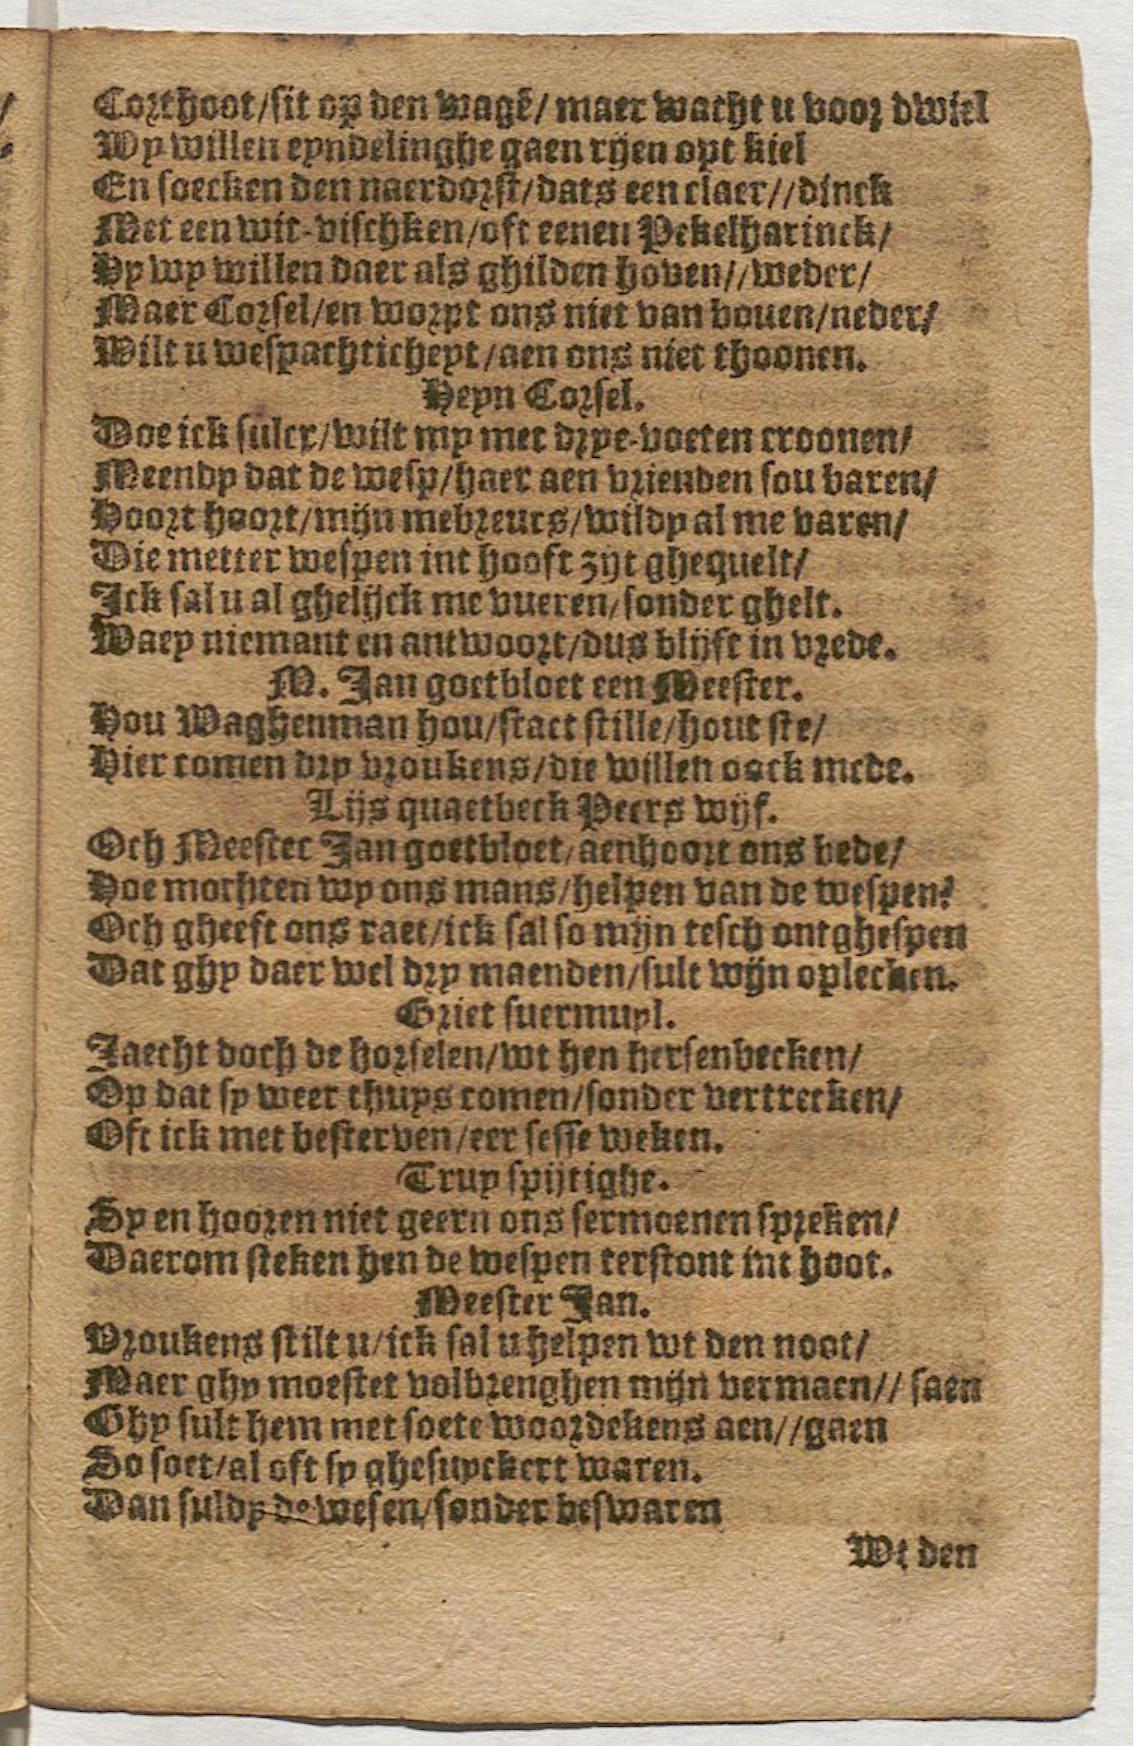 Corthoot/sit op den wagē/ maer wacht u voor dwiel
Wy willen eyndelinghe gaen rijen opt kiel
En soecken den naerdorst/dats een claer//dinck
Met een wit-vischken/oft eenen Pekelharinck/
Hy wy willen daer als ghilden hoven//weder/
Maer Corsel/en worpt ons niet van bouen/neder/
Wilt u wespachticheyt/aen ons niet thoonen.
Heyn Corsel.
Doe ick sulcx/wilt my met drye-voeten croonen/
Meendy dat de wesp/haer aen vrienden sou baren/
Hoort hoort/mijn mebreurs/wildy al me varen/
Die metter wespen int hooft zijt ghequelt/
Ick sal u al ghelijck me vueren/sonder ghelt.
Waey niemant en antwoort/dus blijft in vrede.
M. Jan goetbloet een Meester.
Hou Waghenman hou/staet stille/hout ste/
Hier comen dry vroukens/die willen oock mede.
Lijs quaetbeck Peers wijf.
Och Meester Jan goetbloet/aenhoort ons bede/
Hoe mochten wy ons mans/helpen van de wespen?
Och gheeft ons raet/ick sal so mijn tesch ontghespen
Dat ghy daer wel dry maenden/sult wijn oplecken.
Griet suermuyl.
Jaecht doch de horselen/wt hen hersenbecken/
Op dat sy weer thuys comen/sonder vertrecken/
Oft ick met besterven/eer sesse weken.
Truy spijtighe.
Sy en hooren niet geern ons sermoenen spreken/
Daerom steken hen de wespen terstont int hoot.
Meester Jan.
Vroukens stilt u/ick sal u helpen wt den noot/
Maer ghy moestet volbrenghen mijn vermaen// saen
Ghy sult hem met soete woordekens aen//gaen
So soet/al oft sy ghesuyckert waren.
Dan suldy de wesen/sonder beswaren
Wt den